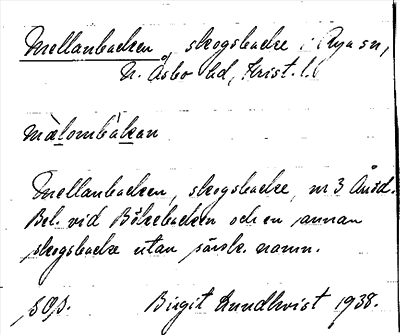 Mellanbacken, skogsbacke i Rya sn,
N. Åsbo hd, Krist. l.
mèlombàkan
Mellanbacken, skogsbacke, nr 3
Bel. vid Bökebacken och en annan
skogsbacke utan särsk. namn.
Birgit Lundkvist 1938.